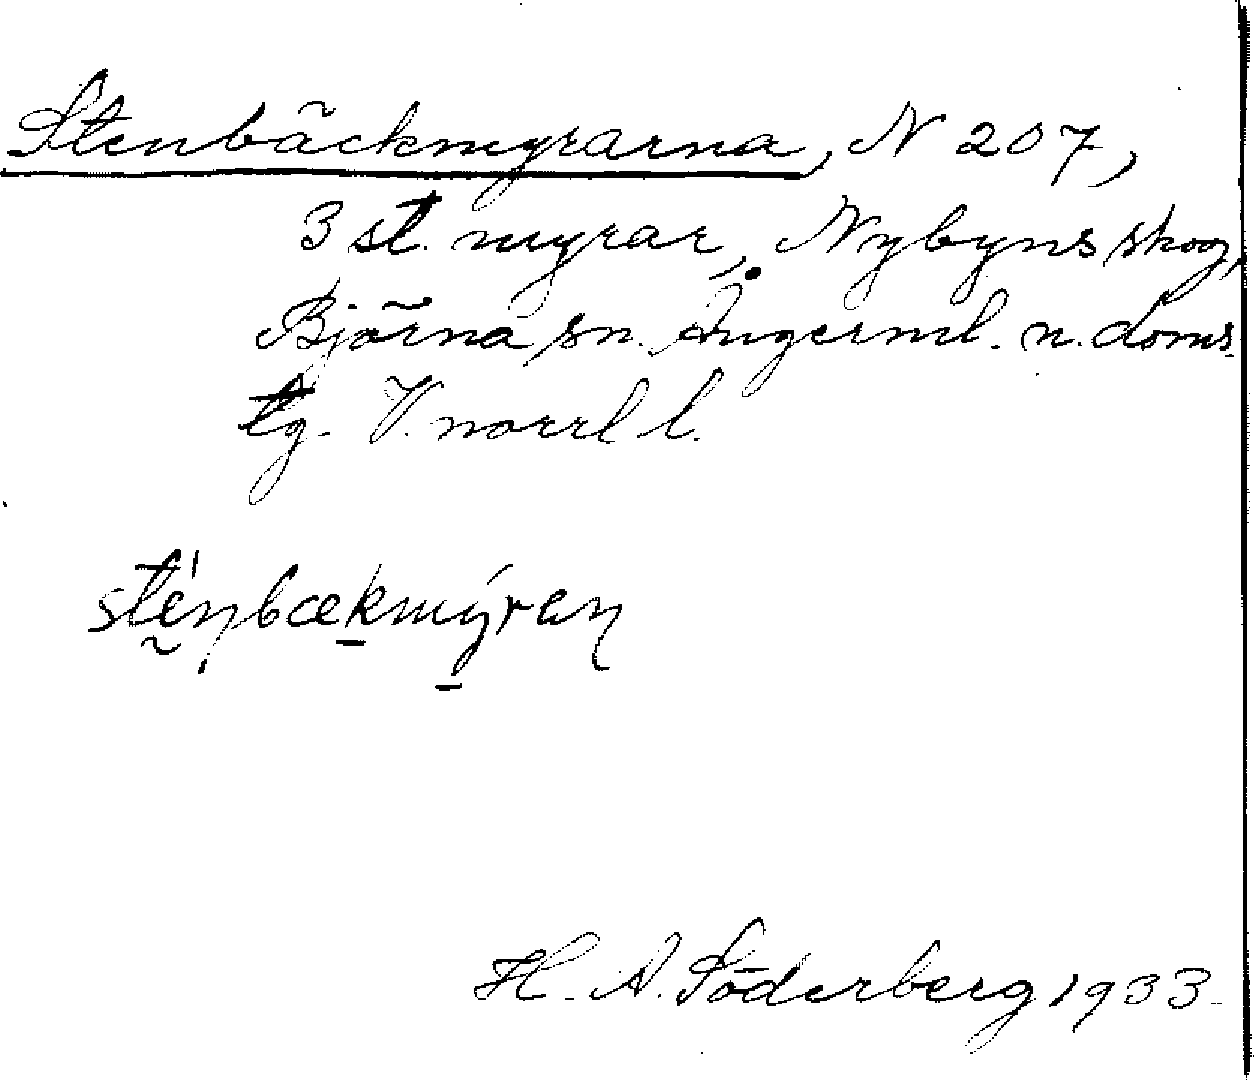 Stenbäckmyrarna, N 207,
3 st. myrar, Nybyns skog,
Björna sn. Ångerml. n. doms.
tg. V. norrl l.
sténbækmýren
H. A. Söderberg 1933.